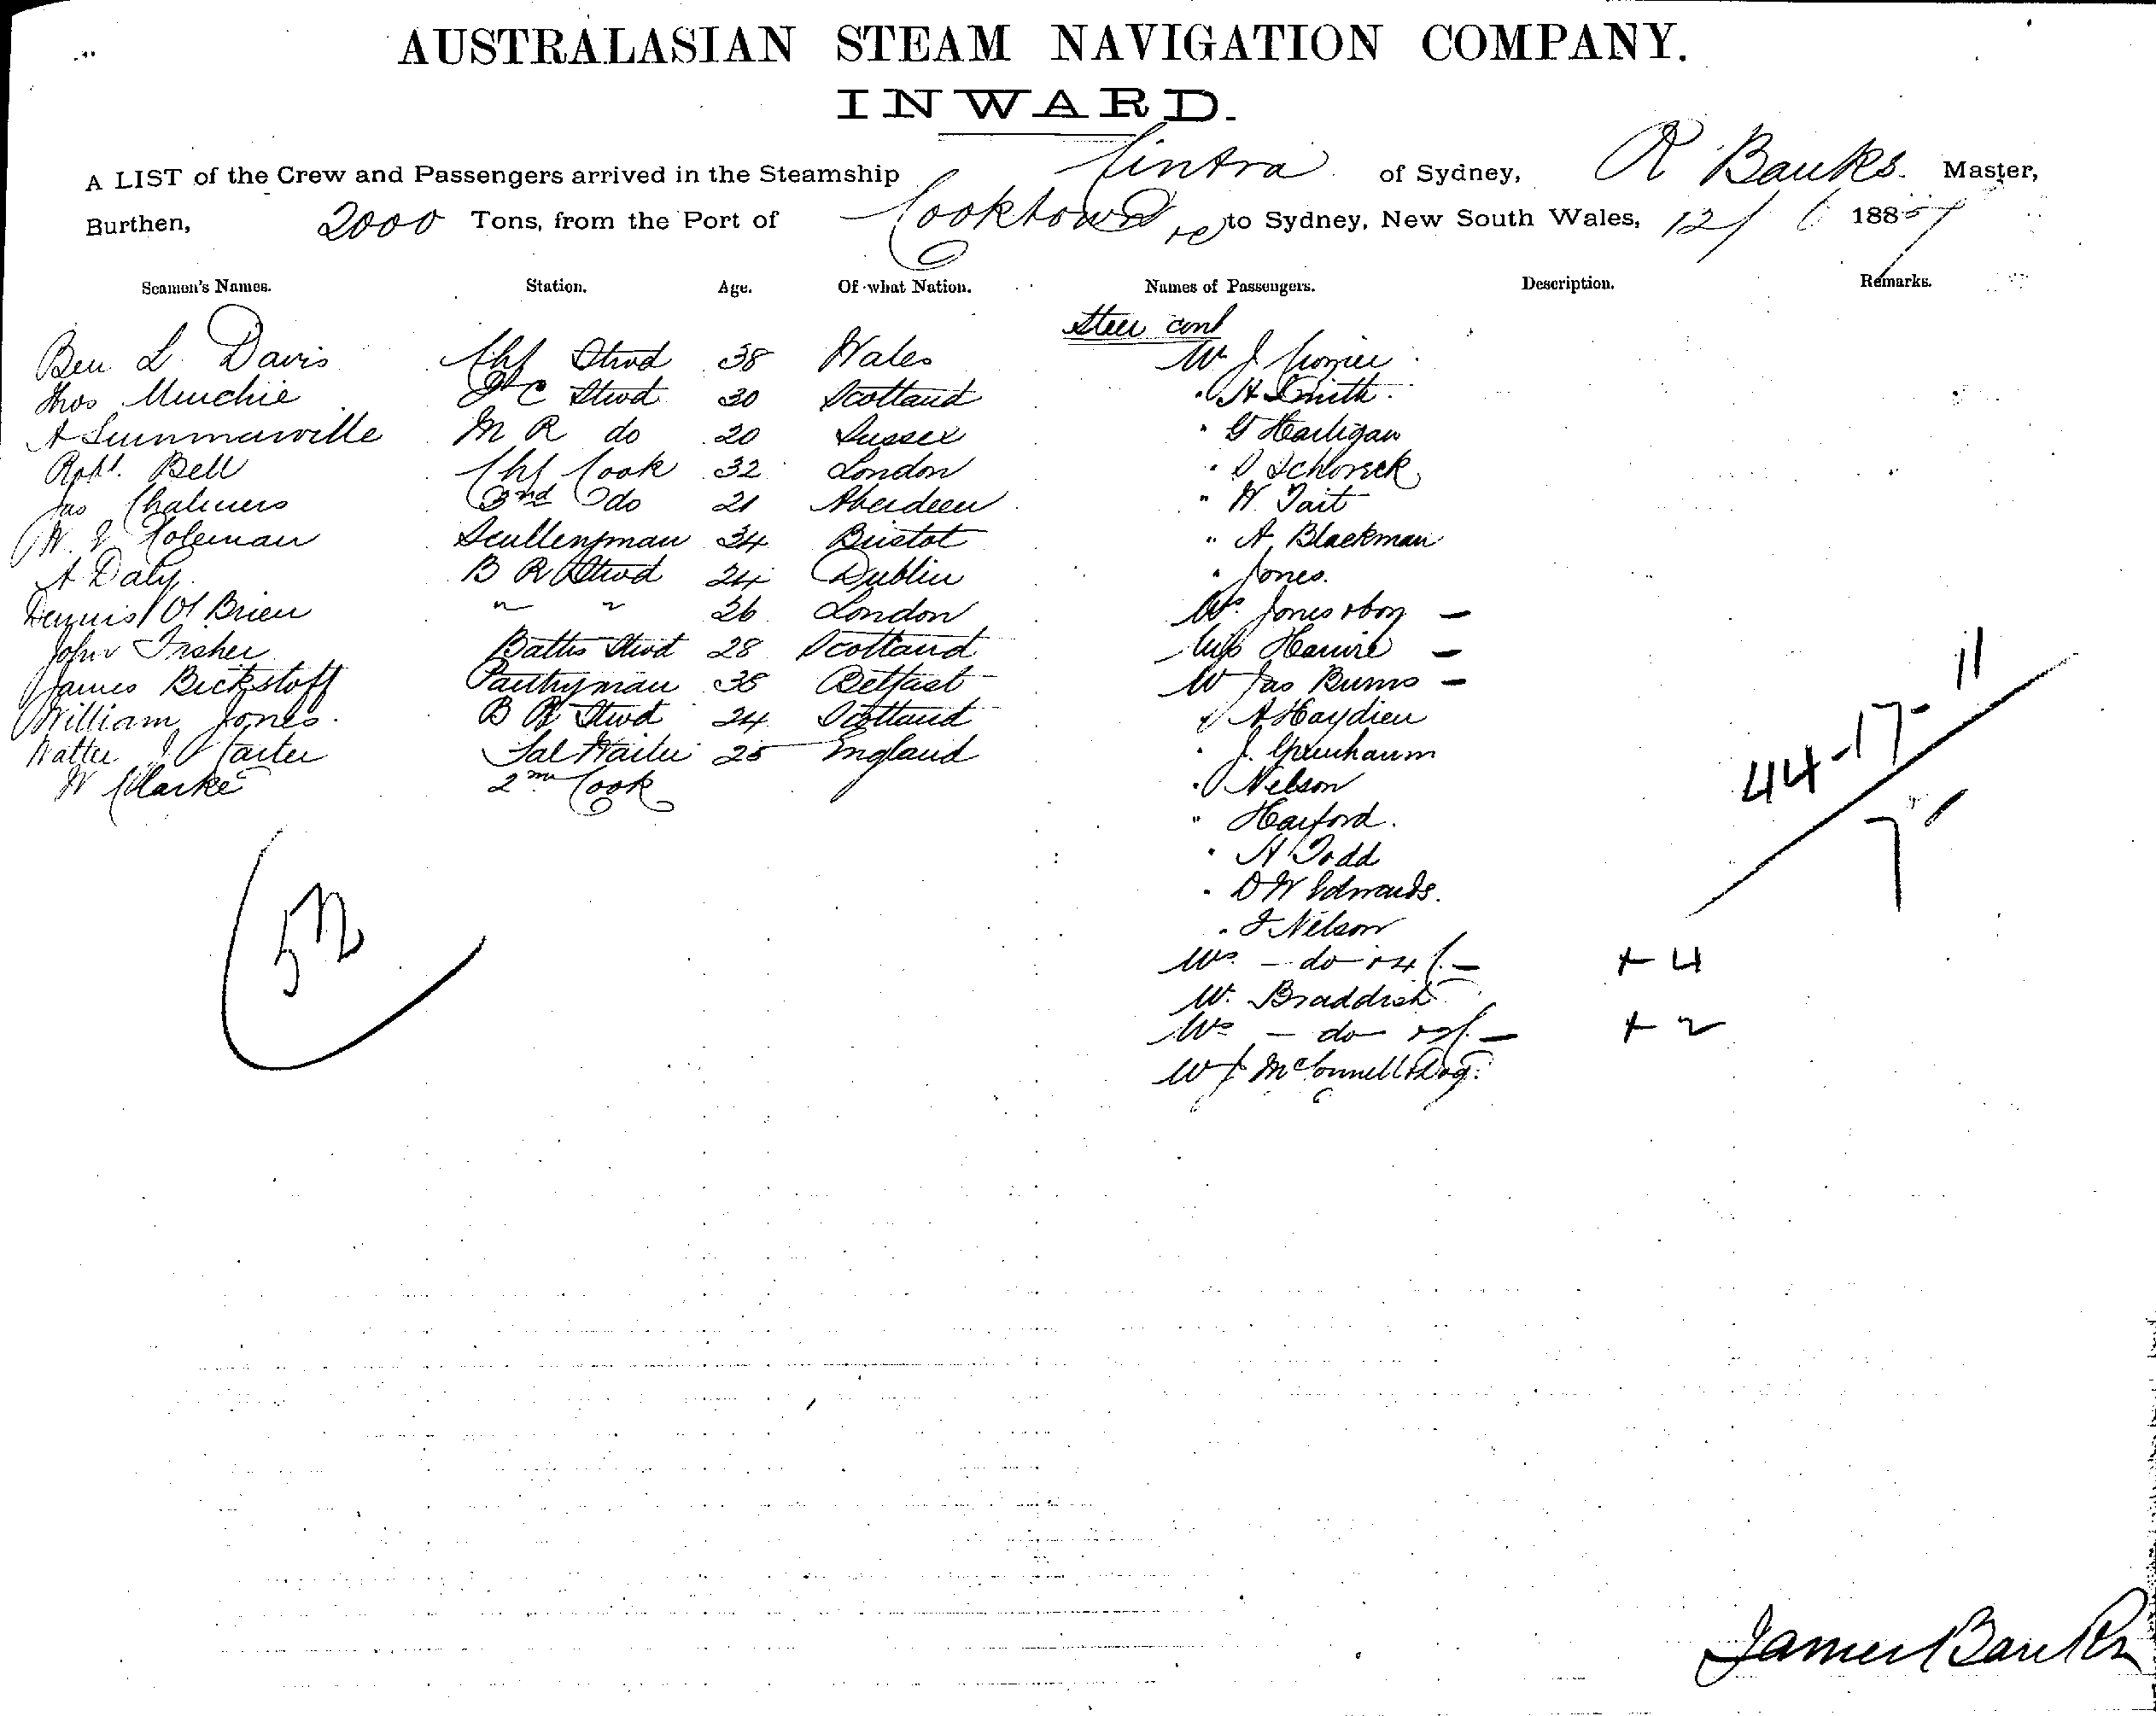 AUSTRALASIAN STEAM NAVIGATION COMPANY.
INWARD.
A LIST of the Crew and Passengers arrived in the Steamship Cintra of Sydney, R Banks. Master,
Burthen, 2000 Tons, from the Port of Cooktown to Sydney, New South Wales, 12/ 6 188
Seamen's Names. Station. Age. Of what Nation. Names of Passengers. Description. Remarks.
Steer cont
Ben L. Davis Chf Stwd 38 Wales Mr J
Thos Murchie Stwd 30 Scotland " H Smith
A Summarville M R do 20 Sussex " G Hartigan
Robt. Bell Chf Cook 32 London "
Jas Chalmers 3nd do 21 Aberdeen " W. Tait
W. Coleman Sculleryman 34 Bristol " A. Blackman
A Daly B R Stwd 24 Dublin " Jones.
Dennis O'Brien " " 26 London Mrs. Jones & boy —
John Fraher Baths Stwd 28 Scotland Miss —
James Bickstoff Pantryman 38 Belfast Mr Jas Burns —
William Jones. B R Stwd 24 Scotland " A Haydien
Walter J Carter Sal Waiter 25 England " J.
W Clarke 2nd Cook " Nelson
" Harford.
" H Todd
" D W Edwards.
" J Nelson
Mrs. — do — & 4 f. — + 4
Mr. Braddish
Mrs — do — & 2 f. — + 2
Mr J McConnell & Dog.
44-17-11
7 1
52
James Banks